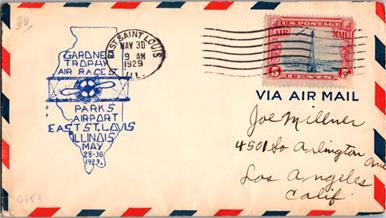 30
GARDNER
TROPHY
AIR RACES
PARKS
AIRPORT
EAST ST. LOUIS
ILLINOIS
MAY
28-30
1929.
EAST SAINT LOUIS
MAY 30
9 AM
1929
ILL.
U.S. POSTAGE
AIR MAIL
5 5
CENTS
VIA AIR MAIL
Joe Millner
4501 So Arlington Ave
Los Angeles
Calif.